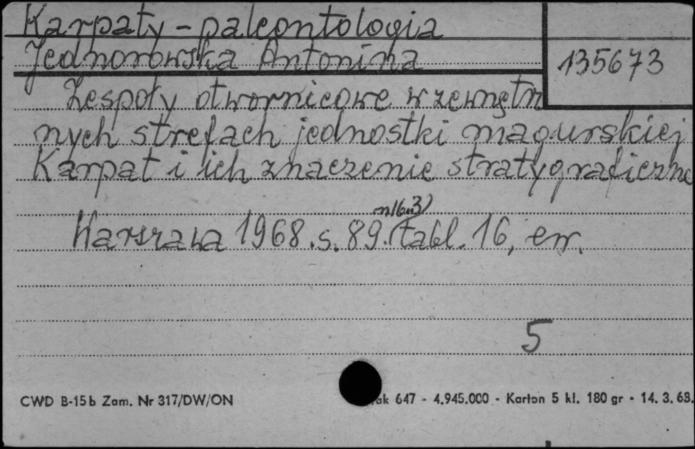 Karpaty - paleontologia
Jednorowska Antonina
135673
Zespoły otwornicowe w zewnętrz
nych strefach jednostki magurskiej
Karpat i ich znaczenie stratygraficzne
Warszawa 1968. s. 89. tabl. 16, err.
5
CWD B-15b Zam. Nr 317/DW/ON
647 - 4.945.000 - Karton 5 kl. 180 gr - 14. 3. 68.